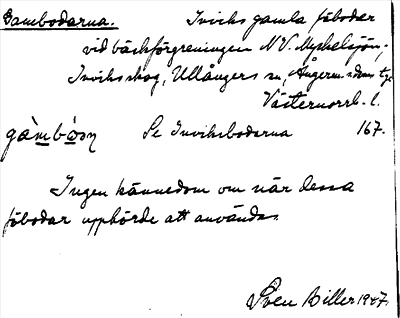 Gambodarna. Inviks gamla fäbodar
vid bäckförgreningen N.V. Myckelsjön,
Inviks skog, Ullångers sn, Ångerm. s. dom. tg.
Västernorrl. l.
gàmbòɷn Se Inviksbodarna 167.
Ingen kännedom om när dessa
fäbodar upphörde att användas.
Sven Biller 1947.